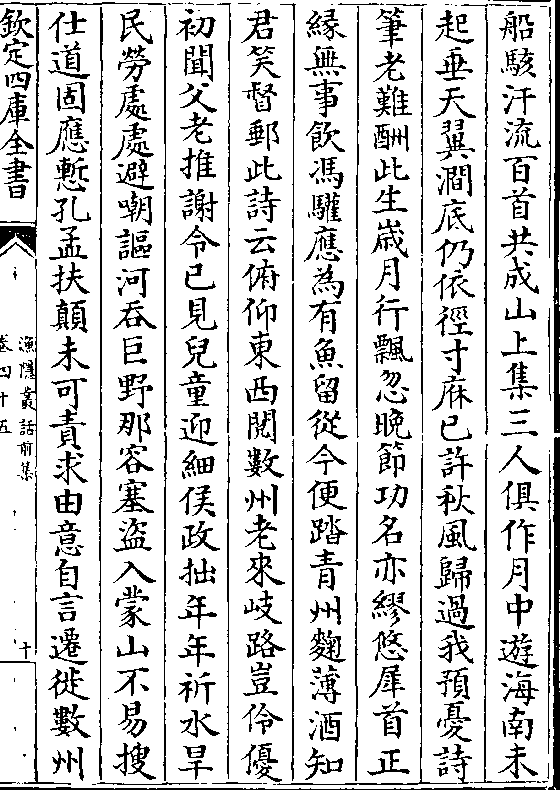 船駭汗流百首共成山上集三人俱作月中遊海南未
起垂天翼澗底仍依徑寸麻已許秋風歸過我預憂詩
筆老難酬此生歲月行飄忽晚節功名亦繆悠犀首正
縁無事飲馮驩應為有魚留從今便踏青州麴薄酒知
君笑督郵此詩云俯仰東西閲數州老來岐路豈伶優
初聞父老推謝令已見兒童迎細侯政拙年年祈水旱
民勞處處避嘲謳河吞巨野那容塞盜入蒙山不易搜
仕道固應慙孔孟扶顛未可責求由意自言遷徙數州
欽定四庫全書
漁隱叢話前集
卷四十五
十